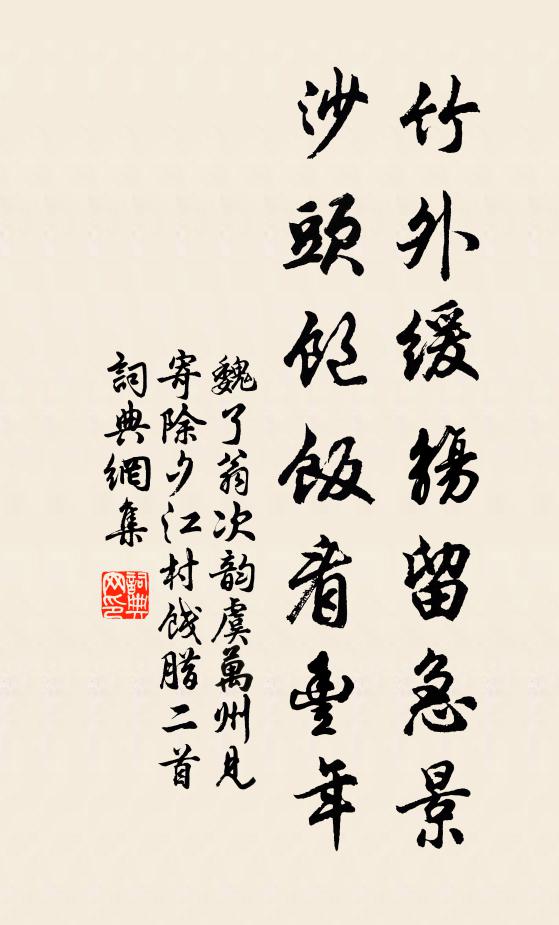 竹外緩觴留急景
沙頭飽飯看豐年
魏了翁次韵虞萬州見
寄除夕江村餞腊二首
詞典網集
詞典
网印